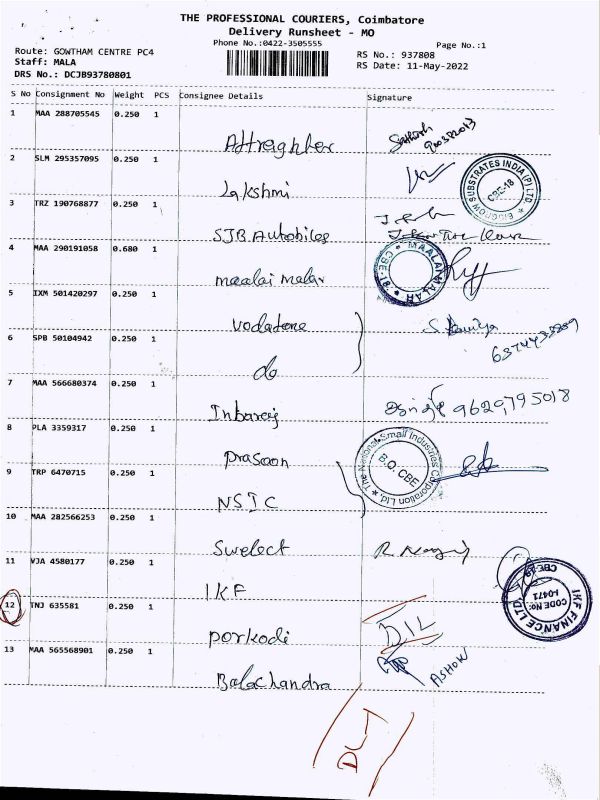 THE PROFESSIONAL COURIERS, Coimbatore
Delivery Runsheet - MO
Phone No.:0422-3505555
Page No.:1
Route: GOWTHAM CENTRE PC4
Staff: MALA
DRS No.: DCJB93780801
RS No.: 937808
RS Date: 11-May-2022
S No Consignment No Weight PCS Consignee Details Signature
1 MAA 288705545 0.250 1
2 SLM 295357095 0.250 1
Lakshmi
SUBSTRATES INDIA (P) LTD CBE-18
3 TRZ 190768877 0.250 1
SJB Autobiles
4 MAA 290191058 0.680 1
maalai malar
MAALAI MALAR CBE-18
5 IXM 501420297 0.250 1
Vodafone
6 SPB 50104942 0.250 1
do
7 MAA 566680374 0.250 1
Inbaraj
9629795018
8 PLA 3359317 0.250 1
Prasoon
The National Small Industries Corporation Ltd. B.O. CBE
9 TRP 6470715 0.250 1
NSIC
10 MAA 282566253 0.250 1
Swelect
11 VJA 4580177 0.250 1
IKF
IKF FINANCE LTD CODE No: I-0471 CBE-19
12 TNJ 635581 0.250 1
Porkodi
D/L
13 MAA 565568901 0.250 1
Balachandra
ASHOW